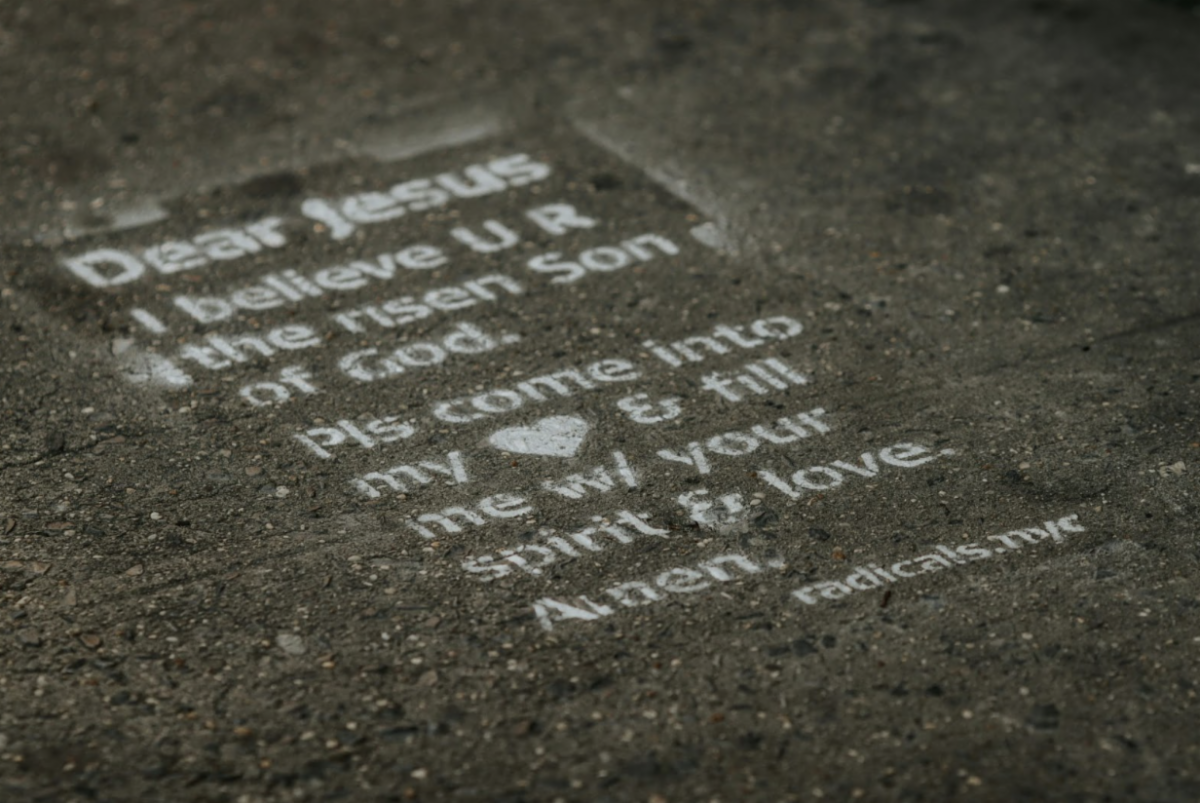 Dear Jesus
I believe U R
the risen Son
of God.
Pls come into
my ♥ & fill
me w/ your
spirit & love.
Amen.
radicals.nyc